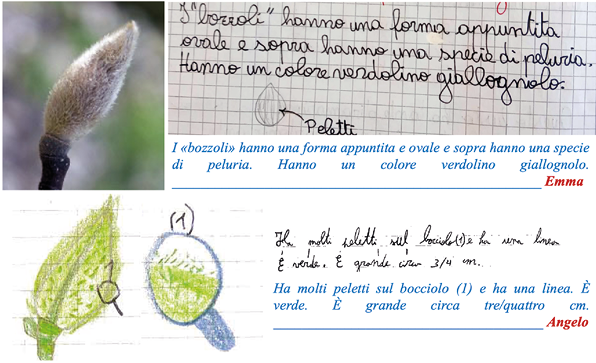 I "bozzoli" hanno una forma appuntita
ovale e sopra hanno una specie di peluria.
Hanno un colore verdolino giallognolo.
Peletti
I «bozzoli» hanno una forma appuntita e ovale e sopra hanno una specie
di peluria. Hanno un colore verdolino giallognolo.
Emma
(1)
Ha molti peletti sul bocciolo (1) e ha una linea
È verde. È grande circa 3/4 cm.
Ha molti peletti sul bocciolo (1) e ha una linea. È
verde. È grande circa tre/quattro cm.
Angelo